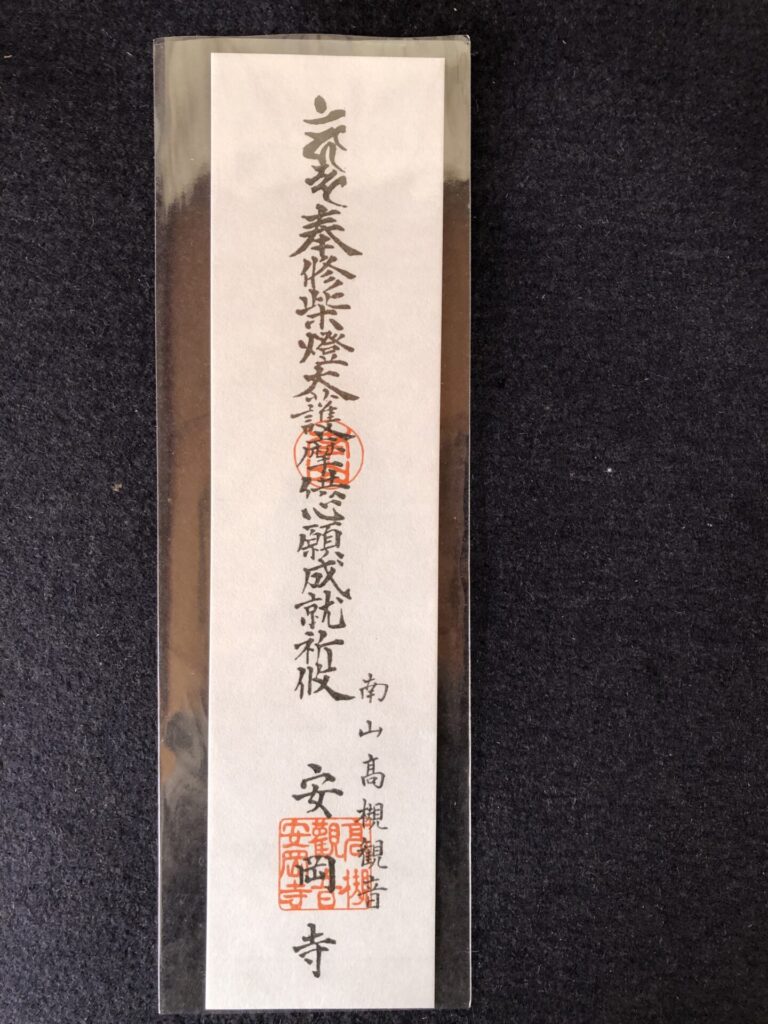 奉修柴燈大護摩供心願成就祈攸
南山髙槻観音
安岡寺
髙槻
觀音
安岡寺